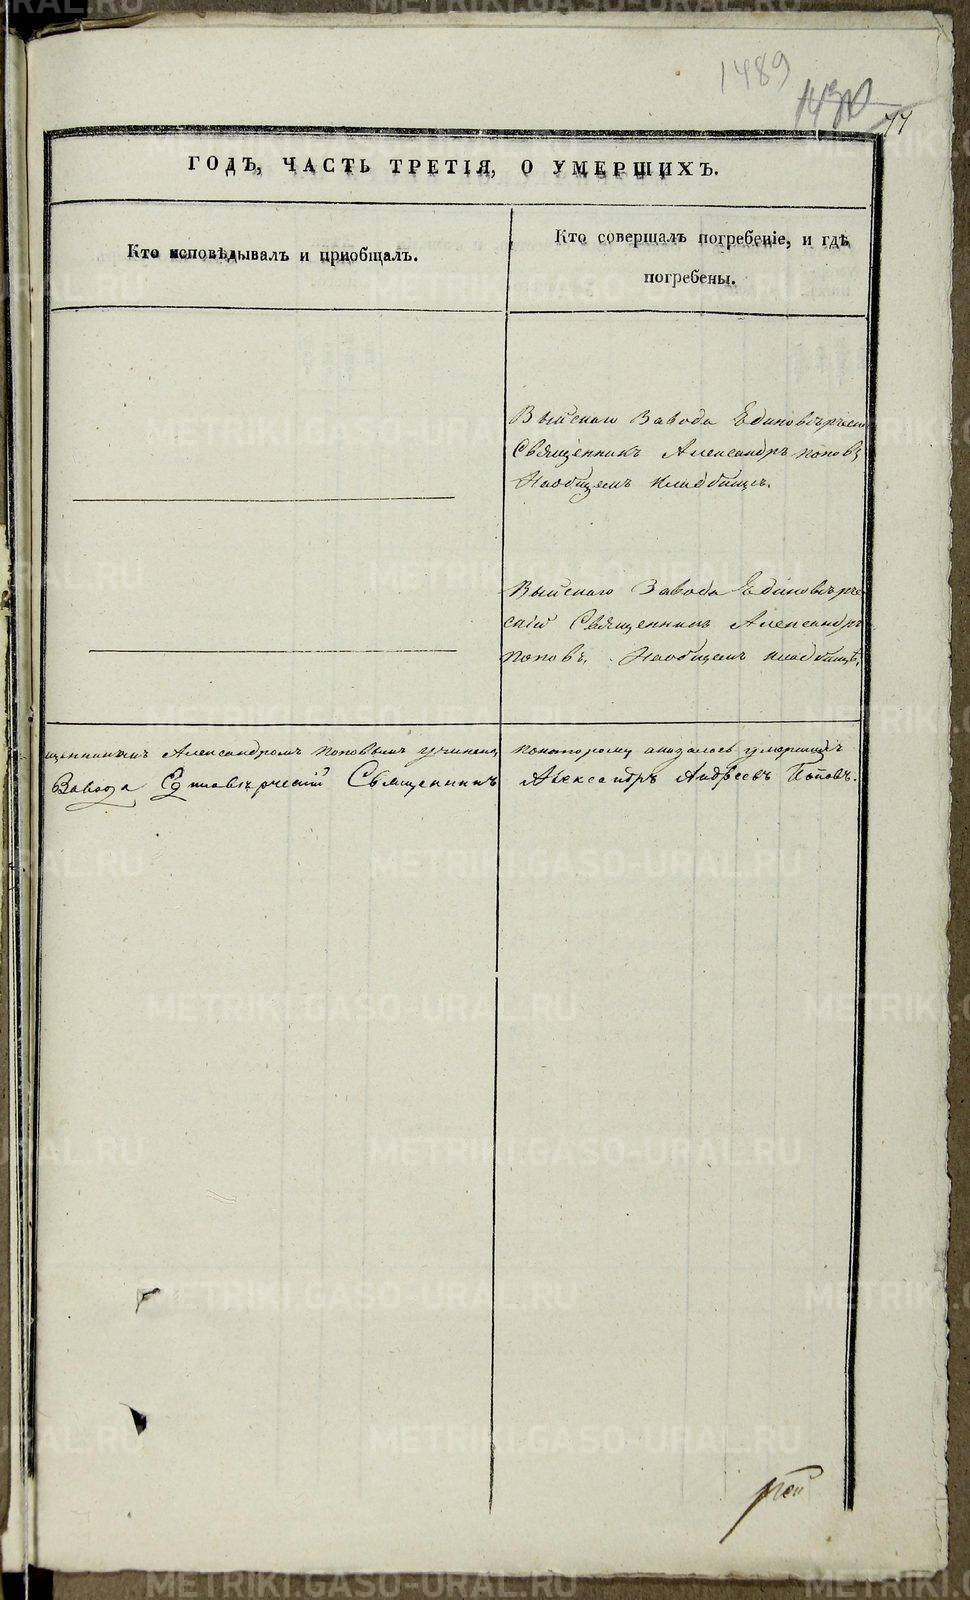 1489
1430
77
ГОДЪ, ЧАСТЬ ТРЕТІЯ, О УМЕРШИХЪ.
Кто исповѣдывалъ и приобщалъ.
Кто совершалъ погребеніе, и гдѣ
погребены.
Выйскаго Завода Единовѣрческ
Священникъ Александръ Поповъ
Наобщемъ кладбищѣ.
Выйскаго Завода Единовѣрче
скій Священникъ Александръ
Поповъ. Наобщемъ кладбищѣ.
щенникомъ Александромъ Поповымъ учинена покоторому оказалось умершихъ
Завода Единовѣрческій Священникъ Александръ Андреевъ Поповъ.
METRIKI.GASO-URAL.RU